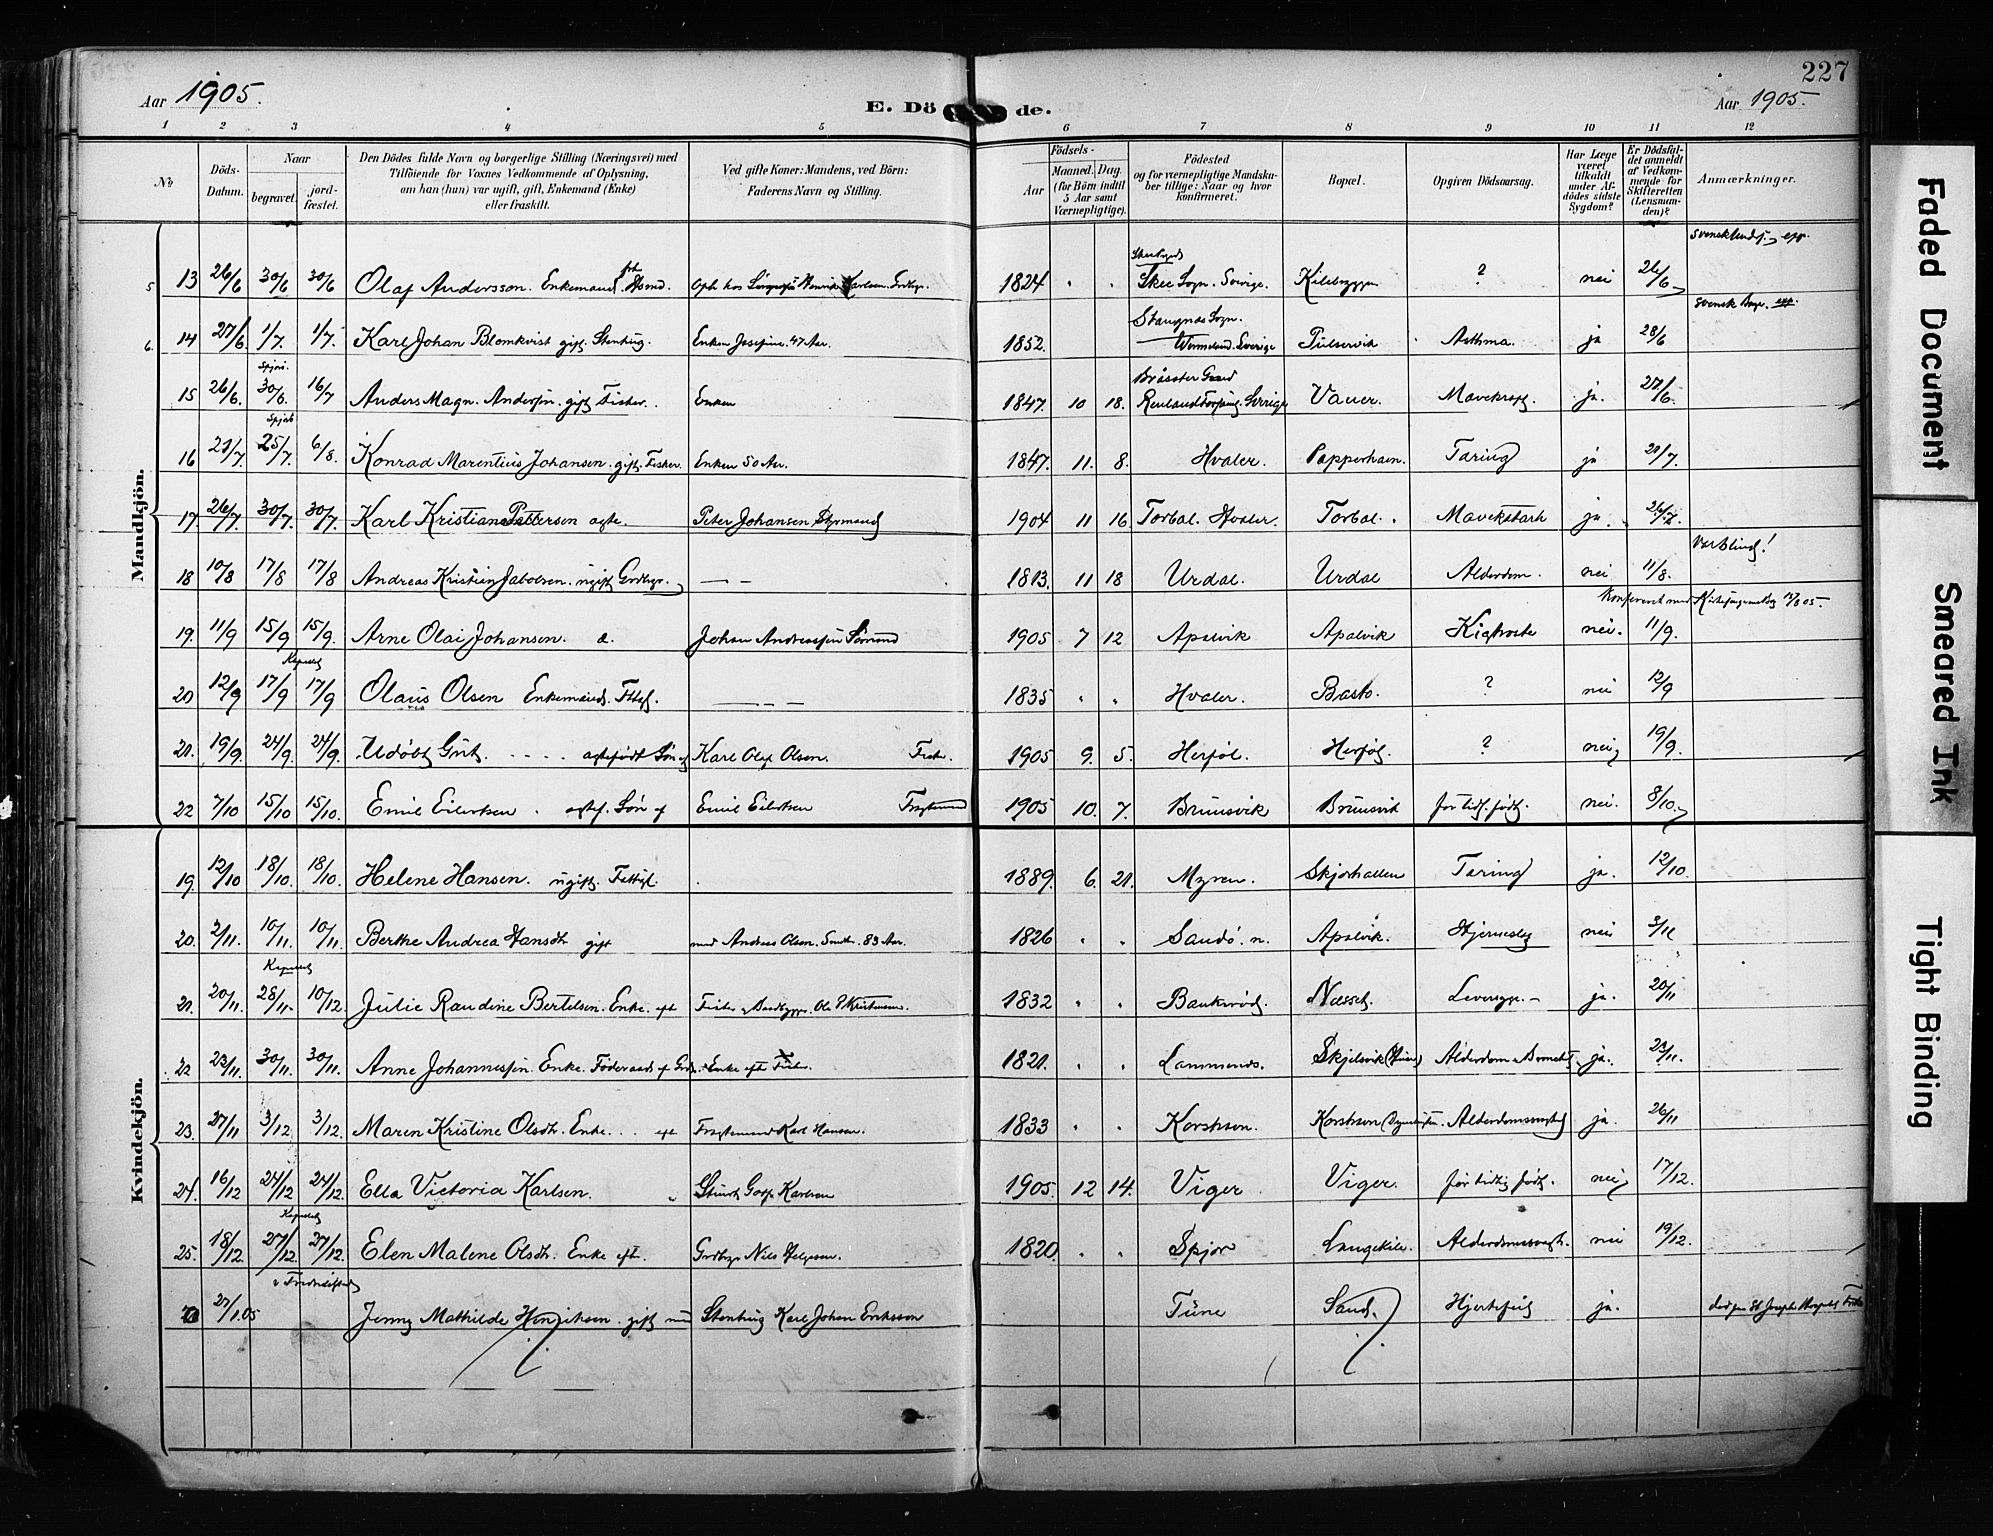 227
Aar 1905.
E. Dö de.
Aar 1905.
1 2 3 4 5 6 7 8 9 10 11 12
No
Döds-Datum.
Naar
begravet.
jord-fæstet.
Den Dödes fulde Navn og borgerlige Stilling (Næringsvei) med
Tilföiende for Voxnes Vedkommende af Oplysning,
om han (hun) var ugift, gift, Enkemand (Enke)
eller fraskilt.
Ved gifte Koner: Mandens, ved Börn:
Faderens Navn og Stilling.
Födsels-
Aar
Maaned. Dag.
(for Börn indtil
5 Aar samt
Værnepligtige).
Födested
og for værnepligtige Mandska-
ber tillige: Naar og hvor
konfirmeret.
Bopæl.
Opgiven Dödsaarsag.
Har Læge
været
tilkaldt
under Af-
dödes sidste
Sygdom?
Er Dödsfal-
det anmeldt
af Vedkom-
mende for
Skifteretten
(Lensman-
den)?
Anmærkninger.
Mandkjön.
5 13 26/6 30/6 30/6 Olaf Andersson. Enkemand. 1824 " " Skee Sogn. Sverige. ? nei 26/6
6. 14 27/6. 1/7. 1/7. Karl Johan Blomkvist gift Stenhug. Enken Josefine. 47 Aar. 1852. Sverige Asthma. ja 28/6
15 26/6. 30/6. 16/7 Anders Magn. Andersen. gift Fisker. Enken 1847. 10 18. Sverige Vauer. ja. 27/6.
Spjær
16 21/7. 25/7. 6/8. Konrad Marentius Johansen. gift. Fisker. Enken 50 Aar. 1847. 11. 8. Hvaler. Papperhavn. Tæring ja 21/7.
17. 26/7 30/7. 30/7. Karl Kristian Pettersen ægte. Peter Johansen Styrmand 1904 11 16 Torbal. Hvaler. Torbal. Mavekatarh ja. 26/7.
Var Blind!
18 10/8 17/8 17/8 Andreas Kristian Jakobsen. ugift Grdbrgr. — — 1813. 11 18 Urdal. Urdal Alderdom. nei 11/8.
19. 11/9 15/9 15/9. Arne Olai Johansen. æ. Johan Andreassen Sömand 1905 7 12 Apalvik Apalvik Kighoste nei. 11/9.
Kapellet
20 12/9 17/9 17/9 Olaus Olsen Enkemand. — — — 1835 " " Hvaler. Basto. ? nei 12/9
21. 19/9. 24/9 24/9. Udöbt Gut. ægtefödt Sön af Karl Olaf Olsen. Fisker. 1905 9. 5. Herföl. Herföl. ? nei 19/9.
22 7/10 15/10 15/10. Emil Eilertsen. ægtef. Sön af Emil Eilertsen Fragtemand 1905 10. 7. Brunsvik Brunsvik for tidl. födt. nei. 8/10.
Kvindekjön.
19. 12/10 18/10. 18/10. Helene Hansen. ugift. 1889. 6. 21. Myren. Skjærhallen Tæring ja. 12/10.
20. 2/11. 10/11. 10/11. Berthe Andrea Hansdt. gift med Andreas Olsen. Smdn. 83 Aar. 1826 " " Sandö. n. Apalvik. Hjerneslag nei 3/11
Kapellet
21. 20/11. 28/11. 10/12. Julie Raudine Bertelsen. Enke. eft Fisker & Baadbygger Ole P Kristensen. 1832 " " Bankeröd. Næsset. ja. 20/11
22 23/11. 30/11. 30/11. Anne Johannesen. Enke. Föderaads af Enke eft Fisker. 1821. " " Lammenes. Skjelsvik Alderdom ja. 23/11.
23. 27/11 3/12. 3/12. Maren Kristine Olsdt. Enke. eft Fragtemand Karl Hansen. 1833 " " Korshavn. Korshavn Alderdomssvaghed ja. 26/11
24. 16/12 24/12 24/12. Ella Victoria Karlsen. 1905. 12 14. Viger Viger. for tidlig födt. nei 17/12.
Kapellet
25. 18/12. 27/12. 27/12. Elen Malene Olsdt. Enke eft. Grdbrgr Nils Helgesen. 1820. " " Spjær Langekile. Alderdomssvagh. nei 19/12.
27/1.05 Jenny Mathilde Henriksen. gift med Stenhug Karl Johan Eriksson Tune Sand. Hjertefeil ja. död paa St Josephs Hospital
Faded Document
Smeared Ink
Tight Binding